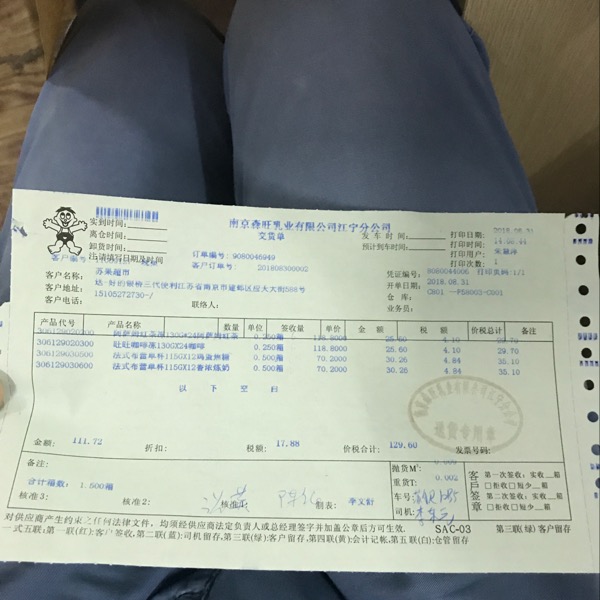 南京森旺乳业有限公司江宁分公司
交货单
实到时间:
离仓时间:
卸货时间:
注:请填写日期及时间
发车时间:
预计到车时间:
打印日期: 2018.08.31
打印时间:
打印用户:
打印次数: 1
订单编号: 9080046949
客户订单号: 201808300002
凭证编号: 9080044006 打印页码:1/1
开单日期: 2018.08.31
仓库: C801
业务员:
客户编号:
客户名称: 苏果超市
客户地址:
客户电话: 15105272730-/
联络人:
产品代号 产品名称 数量 单位 签收量 单价 金额 税额 价税合计 备注
306129020200 0.250箱 118.8000 25.60 4.10 29.70
306129020300 0.250箱 118.8000 25.60 4.10 29.70
306129030500 法式布蕾单杯115GX12 0.500箱 70.2000 30.26 4.84 35.10
306129030600 法式布蕾单杯115GX12香浓炼奶 0.500箱 70.2000 30.26 4.84 35.10
以下空白
金额: 111.72 折扣: 税额: 17.88 价税合计: 129.60 发票号码:
退货专用章
备注:
合计箱数: 1.500箱
抛货M³:
重货T: 0.002
车号:
司机:
客户签章
第一次签收: 实收 箱
拒收 短少 箱
第二次签收: 实收 箱
拒收 短少 箱
核准3: 核准2: 核准1: 制表: 李文舒
对供应商产生约束之任何法律文件,均须经供应商法定负责人或总经理签字并加盖公章后方可生效.
SAC-03 第三联(绿)客户留存
一式五联:第一联(红):客户签收,第二联(蓝):司机留存,第三联(绿):客户留存,第四联(黄):会计记帐,第五联(白):仓管留存